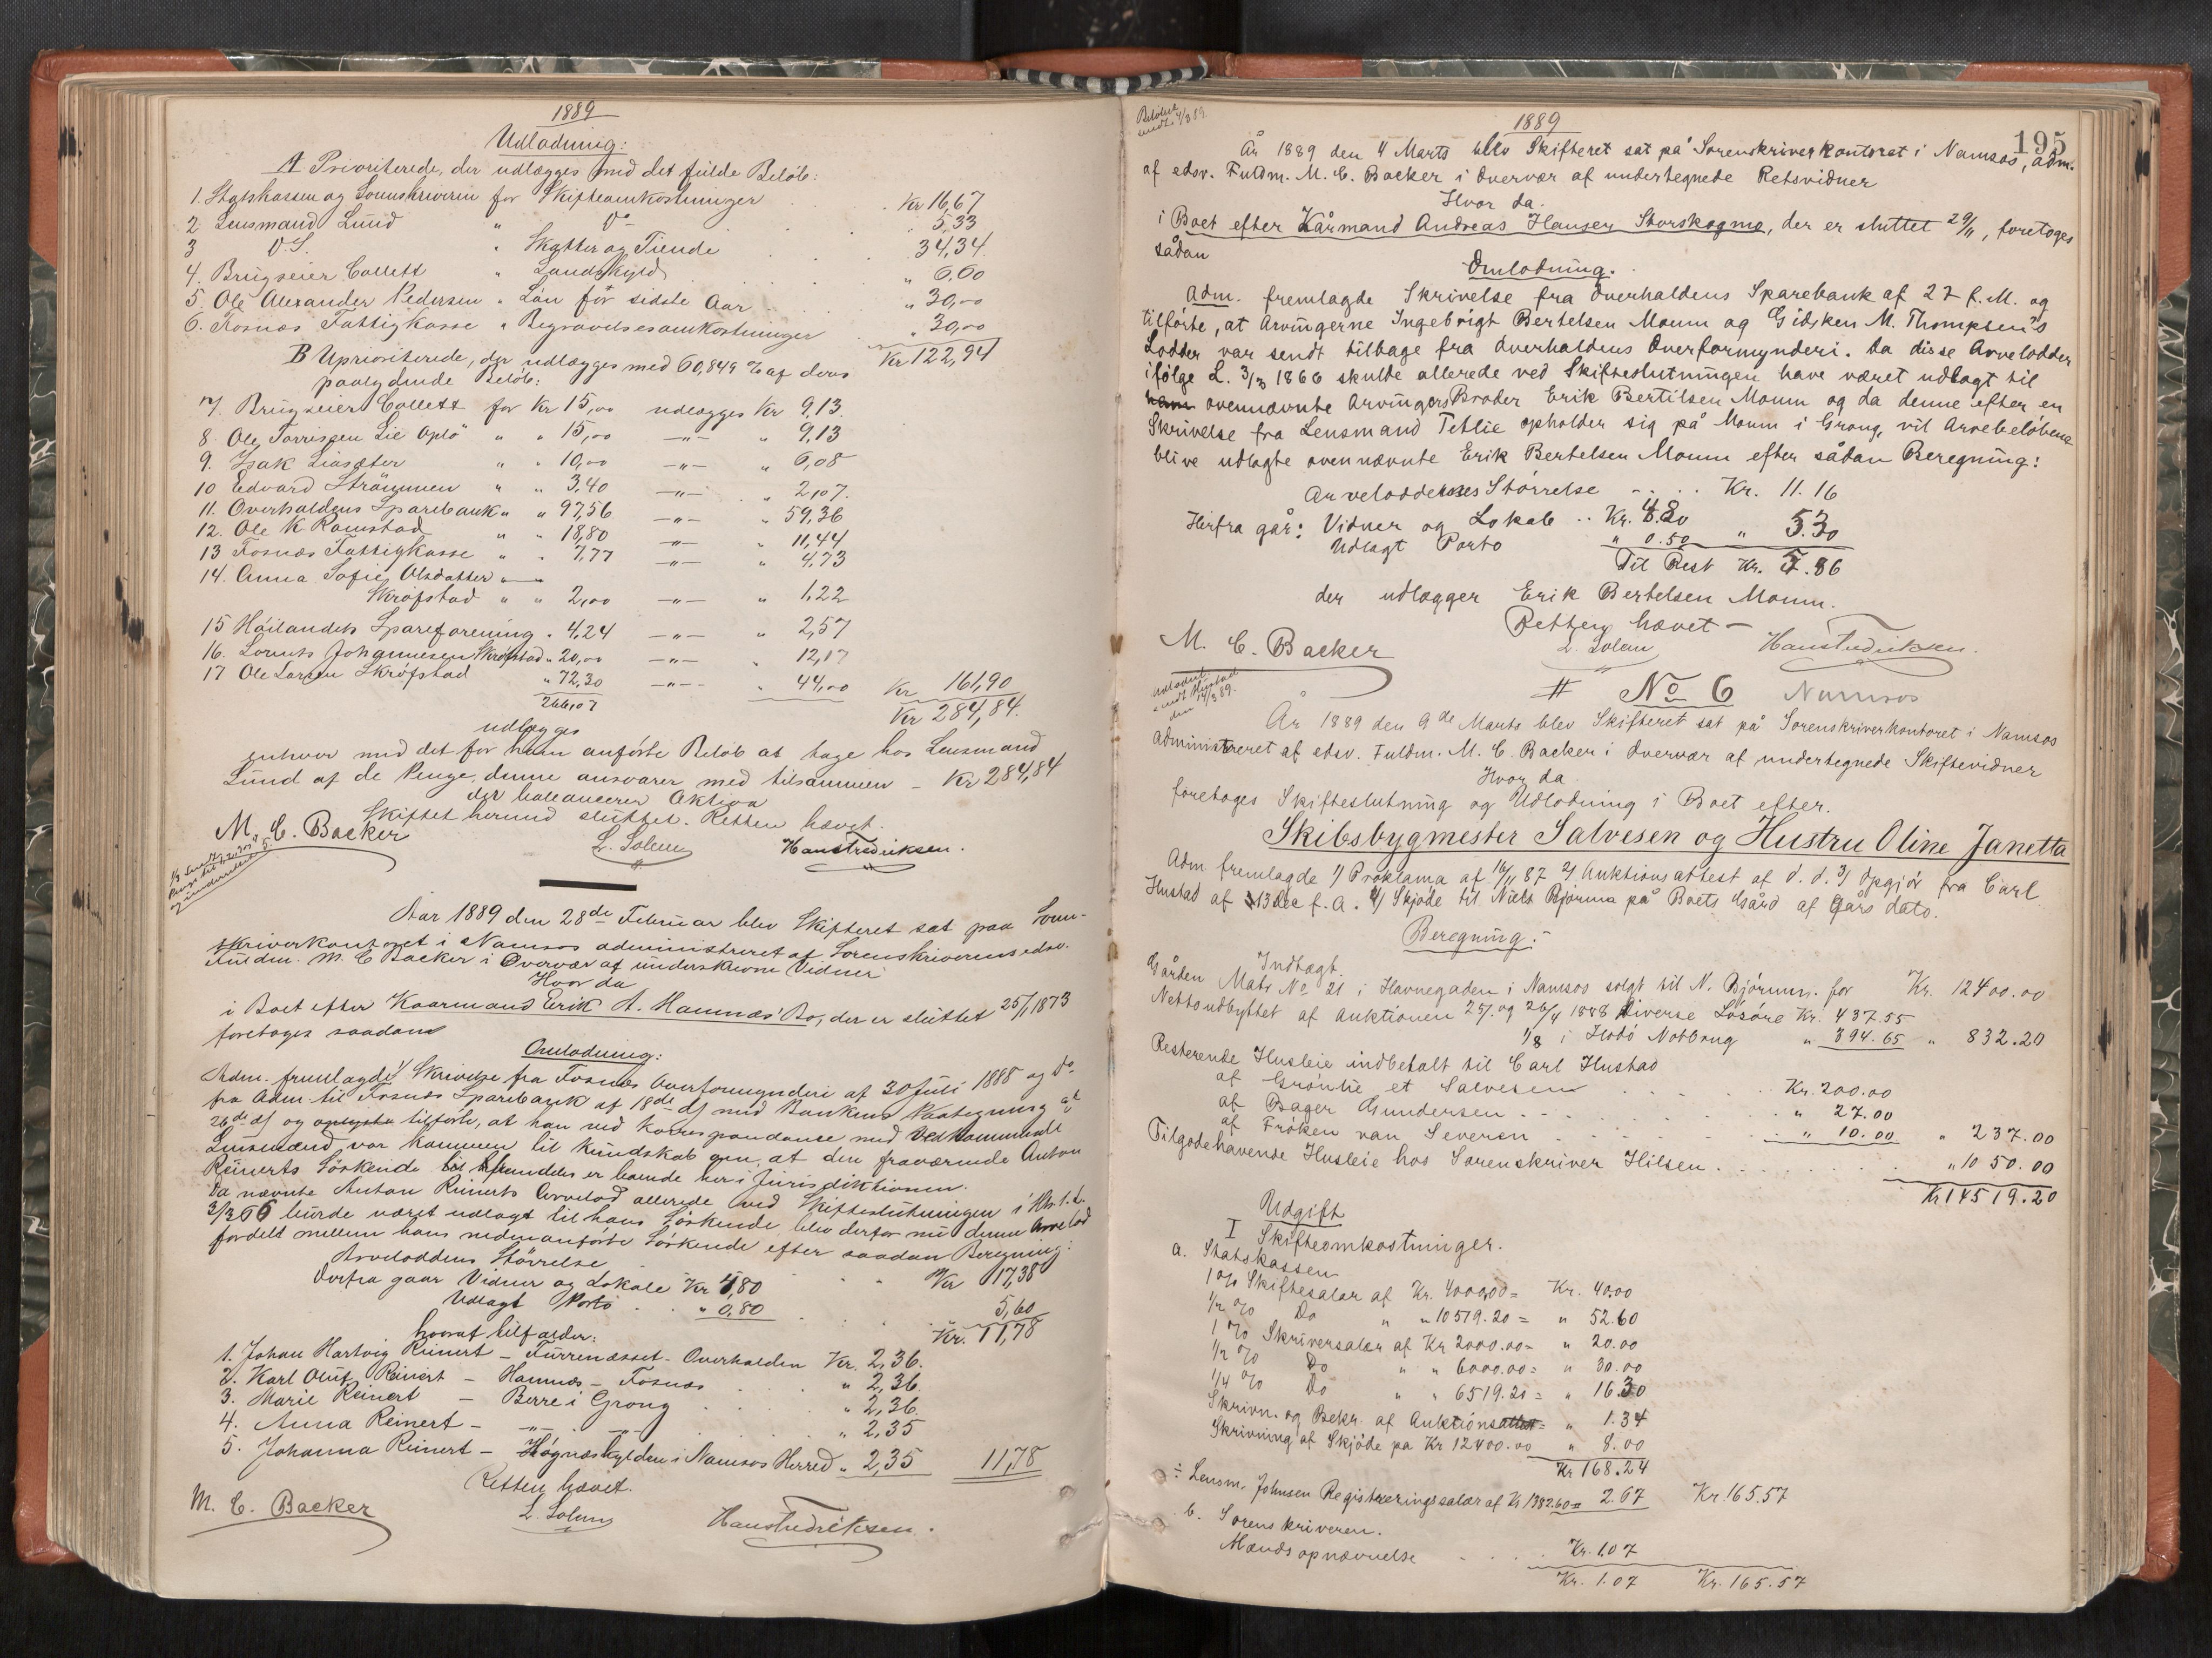 1889
Udlodning:
A Prioriterede, der udlægges med det fulde Beløb:
1. Statskassen og Sorenskriveren for Skifteomkostninger Kr 16,67
2 Lensmand Lund " Do 5,33
3 DS. " Skatter og Tiende 34,34
4. Brugseier Collett " Landskyld " 6,60
5. Ole Alexander Pedersen " Løn for sidste Aar " 30,00
6. Fosnæs Fattigkasse " Begravelsesomkostninger " 30,00
Kr 122,94
B Uprioriterede, der udlægges med 60,849 % af deres
paalydende Beløb:
7. Brugseier Collett for Kr 15,00 udlægges Kr 9,13.
8. Ole Torrissen Lie Oplö " " 15,00 —"— " 9,13
9. Isak Liasæter " " 10,00 —"— " 6,08
10 Edvard Strömmen " " 3,40 —"— " 2,07.
11. Overhaldens Sparebank " " 97,56 —"— " 59,36
12. Ole K Ramstad " " 18,80 —"— " 11,44
13 Fosnæs Fattigkasse " " 7,77 —"— " 4,73
14. Anna Sofie Olsdatter
Skrøfstad " " 2,00 —"— " 1,22
15 Höilandets Spareforening " 4,24 —"— " 2,57
16. Lorents Johannesen Skrøfstad " 20,00 —"— " 12,17
17 Ole Larsen Skröfstad " 72,30 —"— " 44,00 Kr 161,90
266,07 Kr 284,84.
udlægges
enhver med det for ham anførte Beløb at tage hos Lensmand
Lund af de Penge, denne ansvarer med tilsammen - Kr 284,84
der balancerer Aktiva
Skiftet hermed sluttet. Retten hævet.
M. C. Backer L. Solem Hans Fredriksen.
Aar 1889 den 28de Februar blev Skifteret sat paa Soren-
skriverkontoret i Namsos administreret af Sorenskriverens edsv.
Fuldm. M. C Backer i Overvær af underskrevne Vidner
Hvor da
i Boet efter Kaarmand Erik A. Hamnæs' Bo, der er sluttet 25/1 1873
foretoges saadan
Omlodning:
Adm. fremlagde 1/ Skrivelse fra Fosnæs Overformynderi af 30 Juli 1888 og Do.
fra Adm. til Fosnæs Sparebank af 18de ds med Bankens Paategning af
26de ds og oplyste tilførte, at han ved Korrespondance med Vedkommende
Lensmænd var kommen til Kundskab om, at den fraværende Anton
Reinerts Söskende til hfremdeles er boende her i Jurisdiktionen.
Da nævnte Anton Reinerts Arvelod allerede ved Skifteslutningen i Kh. f. L.
3/3 66 burde været udlagt til hans Söskende, blev derfor nu denne Arvelod
fordelt mellem hans nedenanførte Söskende efter saadan Beregning:
Arveloddens Størrelse Kr 17,38
Derfra gaar Vidner og Lokale Kr 4,80
Udlagt Porto " 0,80 5,60
hvoraf tilfalder: Kr. 11,78
1. Johan Hartvig Reinert - Furrenæsset - Overhalden Kr. 2,36.
2. Karl Oluf Reinert - Hamnæs - Fosnæs " 2,36
3. Marie Reinert - Berre i Grong " 2,36.
4. Anna Reinert - —"— " 2,35
5. Johanna Reinert - Høgnæshylden i Namsos Herred " 2,35 11,78
Retten hævet.
M. C. Backer L. Solem Hans Fredriksen.
Beløbet
sendt 4/3 89.
1889
195
År 1889 den 4 Marts blev Skifteret sat på Sorenskriverkontoret i Namsos, adm.
af edsv. Fuldm. M. C. Backer i Overvær af undertegnede Retsvidner
Hvor da.
i Boet efter Kårmand Andreas Hansen Storskogmo, der er sluttet 29/11, foretoges
sådan
Omlodning.
Adm. fremlagde Skrivelse fra Overhaldens Sparebank af 27 f. M. og
tilførte, at Arvingerne Ingebrigt Bertelsen Moum og Gidsken M. Thompsen's
Lodder var sendt tilbage fra Overhaldens Overformynderi. Da disse Arvelodder
ifølge L. 3/3 1866 skulde allerede ved Skifteslutningen have været udlagt til
ham ovennævnte Arvingers Broder Erik Bertilsen Moum og da denne efter en
Skrivelse fra Lensmand Tetlie opholder sig på Moum i Grong, vil Arvebeløbene
blive udlagte ovennævnte Erik Bertelsen Moum efter sådan Beregning:
Arveloddernes Størrelse .... Kr. 11.16
Herfra går: Vidner og Lokale .. Kr. 4.80 " 5.30
Udlagt Porto " 0.50
Til Rest Kr. 5.86
der udlægger Erik Bertelsen Moum.
Retten hævet —
M. C. Backer L. Solem Hans Fredriksen.
Udlodn.
sendt Hustad
den 14/3 89.
# No 6 Namsos
År 1889 den 9de Marts blev Skifteret sat på Sorenskriverkontoret i Namsos
administreret af edsv. Fuldm. M. C. Backer i Overvær af undertegnede Skiftevidner
Hvor da
foretoges Skifteslutning og Udlodning i Boet efter.
Skibsbygmester Salvesen og Hustru Oline Janetta
Adm fremlagde 1/ Proklama af 16/11 87 2/ Auktionsattest af d. d. 3/ Opgjör fra Carl
Hustad af 13 Dec f. A. 4/ Skjöde til Niels Bjørum på Boets Gård af Gårs dato.
Beregning.
Indtægt.
Gården Matr No 21 i Havnegaden i Namsos solgt til N. Bjørum. for Kr. 12400.00
Nettoudbyttet af Auktionen 25/ og 26/4 1888 diverse Lösøre Kr. 437.55
1/8 i Hodö Notbrug " 394.65 " 832.20
Resterende Husleie indbetalt til Carl Hustad
af Grönlie et Salvesen Kr. 200.00
af Bager Gundersen " 27.00
af Fröken van Severen " 10.00 " 237.00
Tilgodehavende Husleie hos Sorenskriver Hilsen " 1050.00
Kr 14519.20
Udgift
I Skifteomkostninger.
a. Statskassen
1% Skiftesalær af Kr. 4000.00 = Kr. 40.00
1/2 % Do " " 10519.20 = " 52.60
1 % Skriversalær af Kr 2000.00 = " 20.00
1/2 % Do " " 6000.00 = " 30.00
1/4 % Do " " 6519.20 = " 16.30
Skrivn. og Bekr. af Auktionsattest = " 1.34
Skrivning af Skjöde på Kr 12400.00 " 8.00
Kr 168.24
÷ Lensm. Johnsen Registreringssalær af Kr 1382.60 = 2.67 Kr. 165.57
b. Sorenskriveren.
Mændsopnævnelse Kr. 1.07
Kr. 1.07 Kr. 165.57